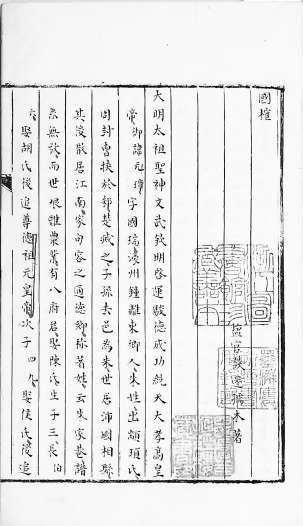 國榷
鹽官談遷孺木著
大明太祖聖神文武欽明啓運駿德成功統天大孝高皇
帝御諱元璋字國瑞濠州鍾離東鄉人朱姓出顓頊氏
周封曹挾於邾楚滅之子孫去邑為朱世居沛國相縣
其後散居江南家句容之通德鄉稱著姓云朱家巷譜
系無攷而世農業有八府君娶陳氏生子三長伯
六娶胡氏後追尊德祖元皇帝次子四九娶侯氏後追